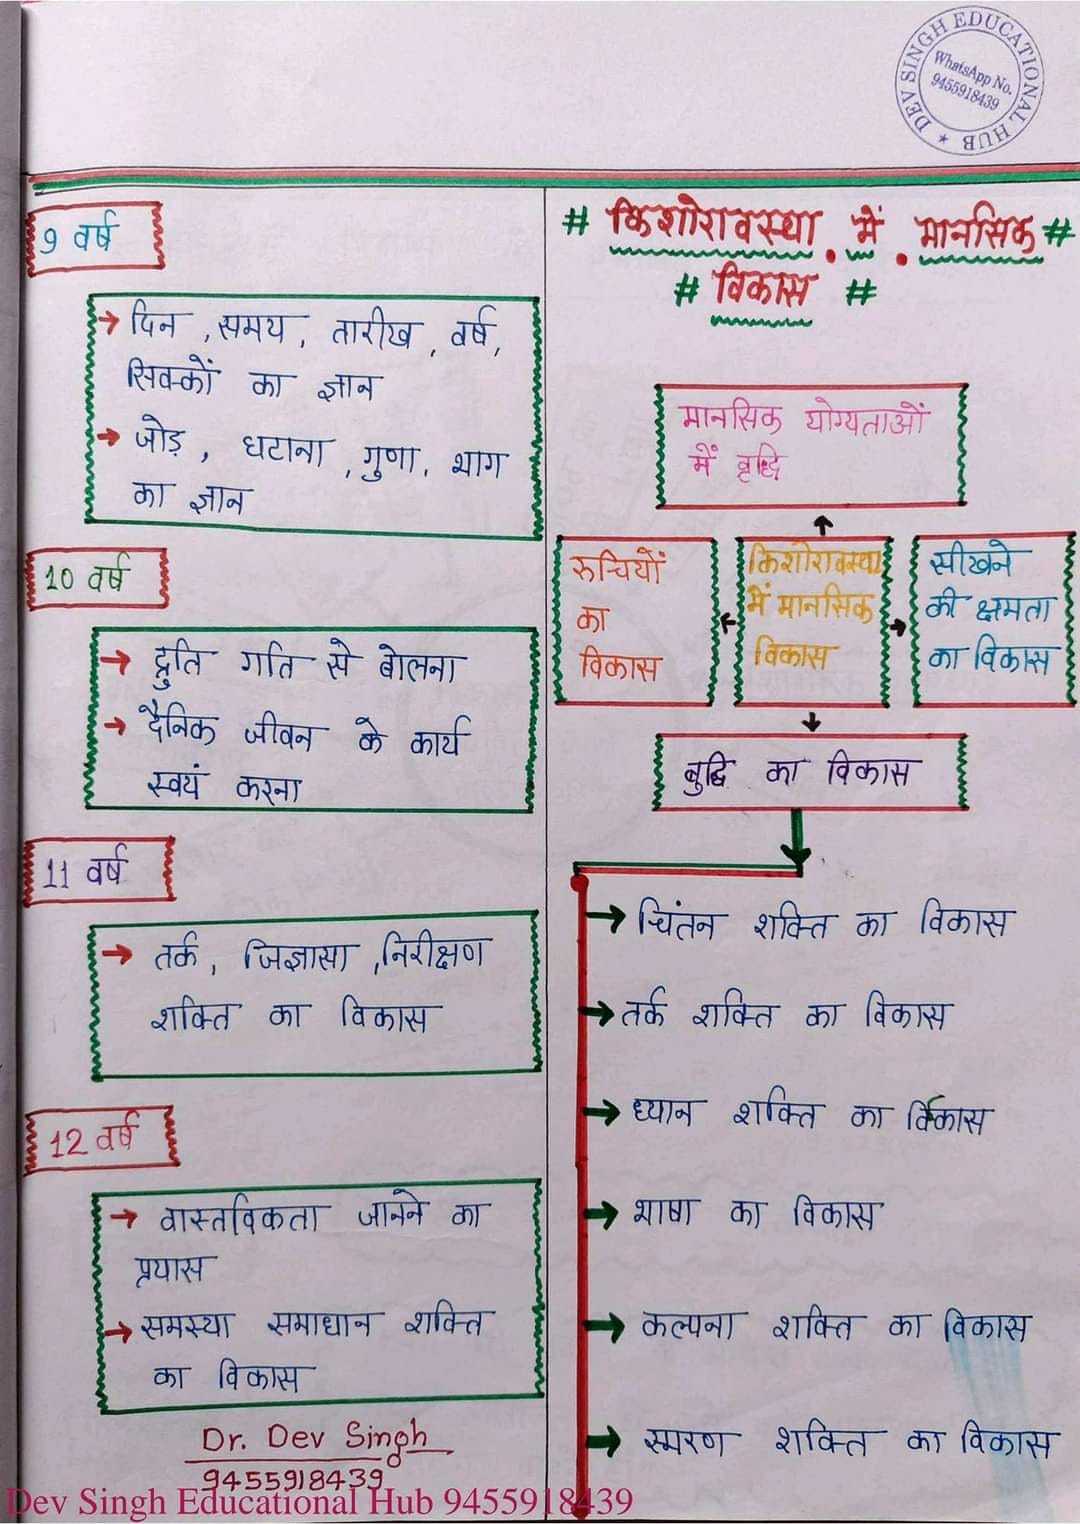 DEV SINGH EDUCATIONAL HUB
WhatsApp No.
9455918439
9 वर्ष
→ दिन , समय , तारीख , वर्ष ,
सिक्कों का ज्ञान
→ जोड़ , घटाना , गुणा , भाग
का ज्ञान
10 वर्ष
→ द्रुति गति से बोलना
→ दैनिक जीवन के कार्य
स्वयं करना
11 वर्ष
→ तर्क , जिज्ञासा , निरीक्षण
शक्ति का विकास
12 वर्ष
→ वास्तविकता जानने का
प्रयास
→ समस्या समाधान शक्ति
का विकास
Dr. Dev Singh
9455918439
# किशोरावस्था में मानसिक #
# विकास #
मानसिक योग्यताओं
में वृद्धि
रुचियों
का
विकास
किशोरावस्था
में मानसिक
विकास
सीखने
की क्षमता
का विकास
बुद्धि का विकास
→ चिंतन शक्ति का विकास
→ तर्क शक्ति का विकास
→ ध्यान शक्ति का विकास
→ भाषा का विकास
→ कल्पना शक्ति का विकास
→ स्मरण शक्ति का विकास
Dev Singh Educational Hub 9455918439